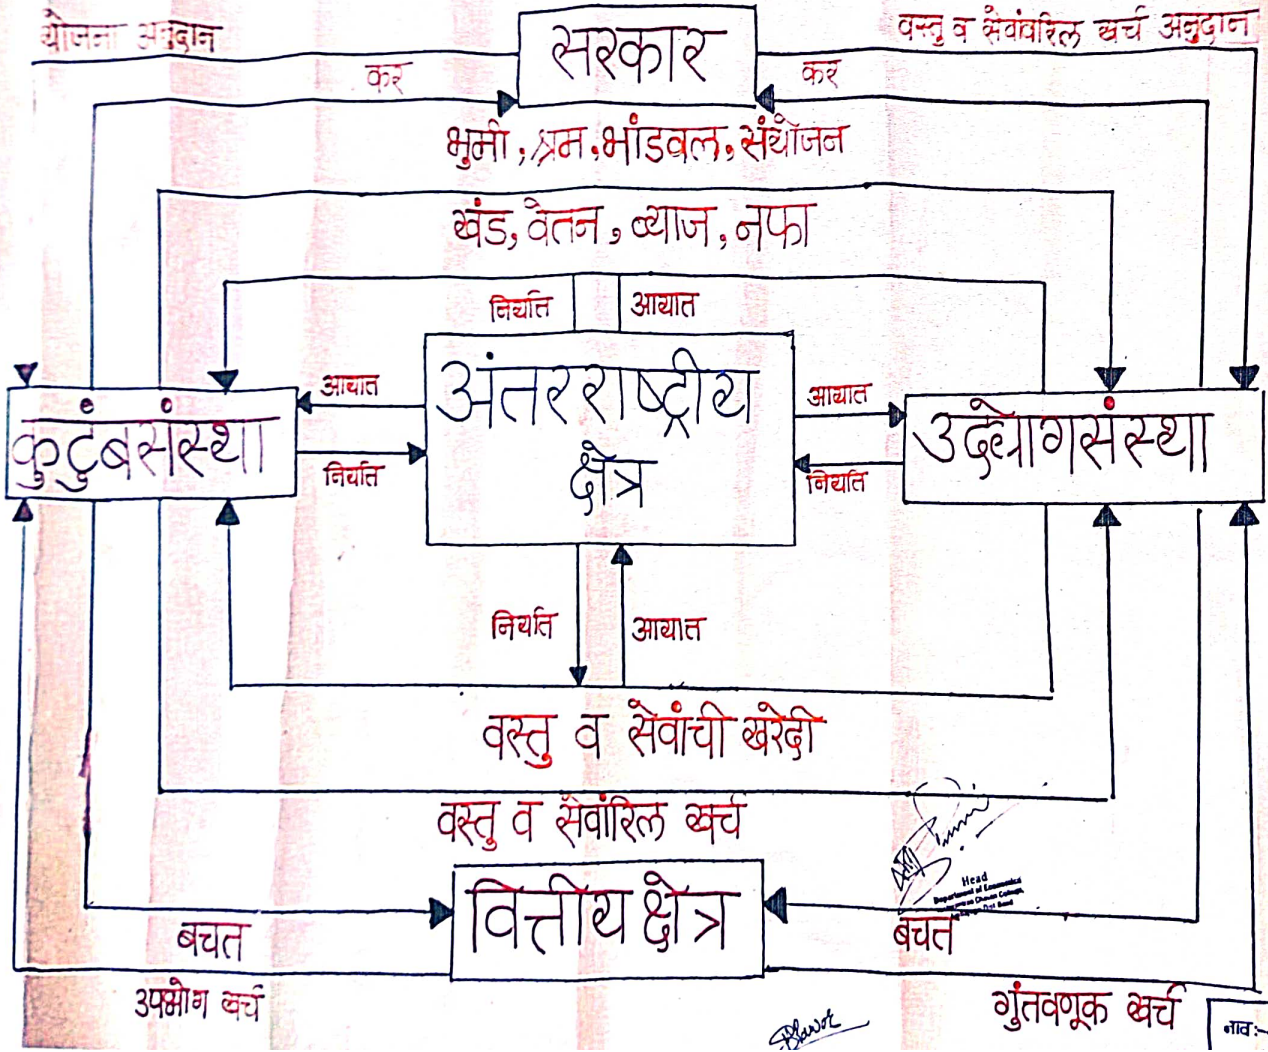 योजना अनुदान
सरकार
वस्तु व सेवांवरिल खर्च अनुदान
कर
कर
भुमी, श्रम, भांडवल, संयोजन
खंड, वेतन, व्याज, नफा
निर्यात
आयात
अंतरराष्ट्रीय
क्षेत्र
कुटुंबसंस्था
उद्योगसंस्था
आयात
निर्यात
आयात
निर्यात
निर्यात
आयात
वस्तु व सेवांची खरेदी
वस्तु व सेवांरिल खर्च
Head
Department of Economics
वित्तीय क्षेत्र
बचत
बचत
उपभोग खर्च
गुंतवणूक खर्च
नाव:-